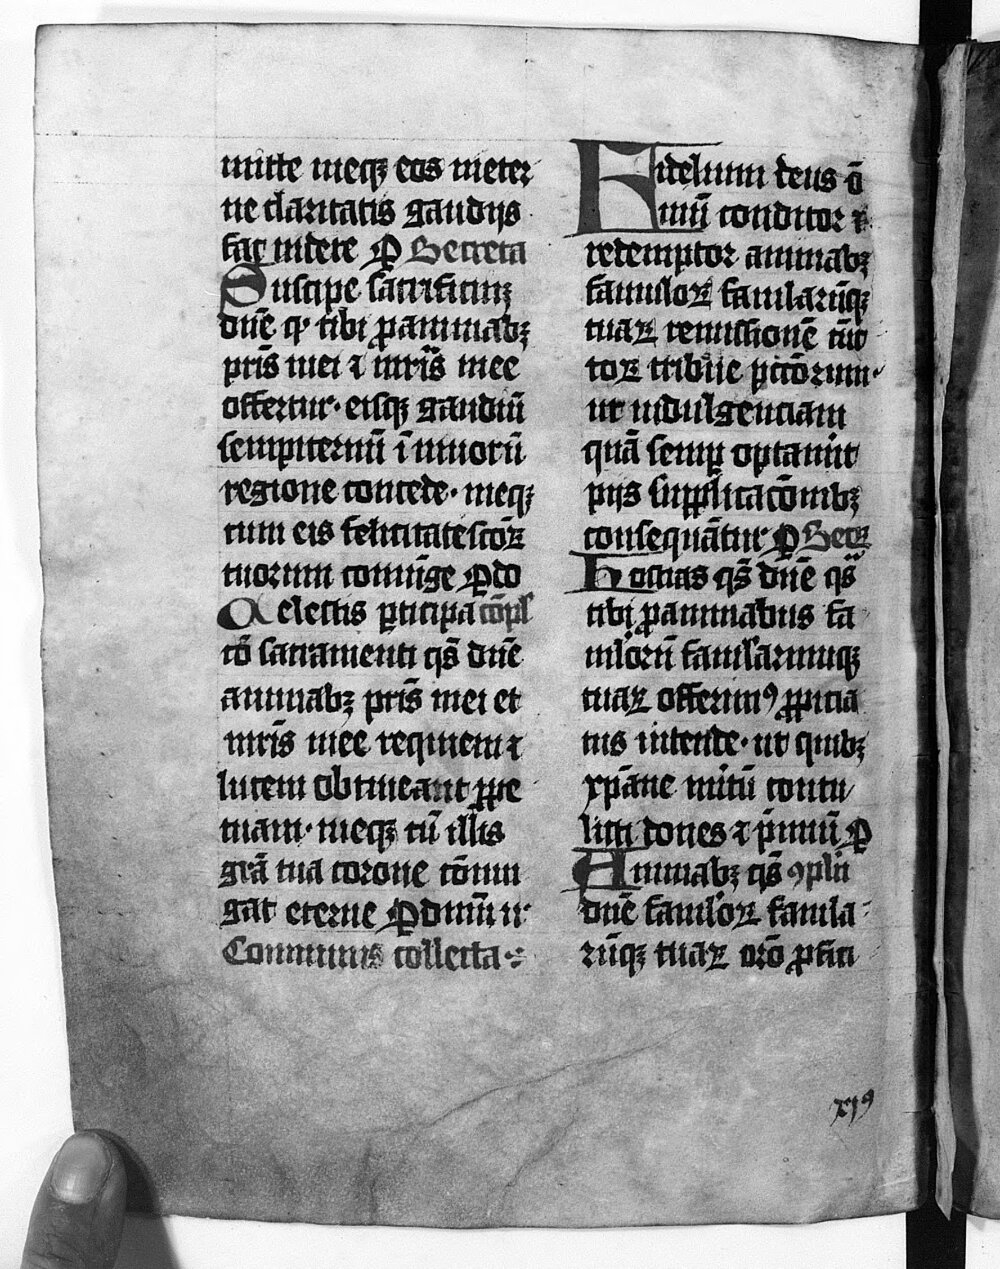 mitte meqꝫ eos in eter
ne claritatis gaudijs
fac videre ꝑ Secreta
Suscipe sacrificiuꝫ
dn̄e qͥ tibi ꝓ animabꝫ
pr̄is mei ⁊ mr̄is mee
offertur · eisqꝫ gaudiū
sempiternū ī viuorū
regione concede · meqꝫ
cum eis felicitate sc̄oꝝ
tuorum coniūge ꝑ do
Celestis ꝑticipac̄o ꝓ
cō sacramenti qs̄ dn̄e
animabꝫ pr̄is mei et
mr̄is mee requiem ⁊
lucem obtineant ꝑpe
tuam · meqꝫ cū illis
grā tua corone cōiun
gat eterne ꝑ dn̄m n
Communis collecta
Fidelium deus ō
niū conditor ⁊
redemptor animabꝫ
famuloꝝ famularūqꝫ
tuaꝝ remissionē cūc
toꝝ tribue pcc̄orum ·
ut indulgenciam
quā semꝑ optauīt
pijs supplicac̄onibꝫ
consequāntur ꝑ Secꝝ
Hostias qs̄ dn̄e qs̄
tibi ꝓ animabus fa
mlorū famlarumqꝫ
tuaꝝ offerimꝰ ꝓpicia
tus intende · ut quibꝫ
xp̄ane mitū contu
listi dones ⁊ p̄miū ꝑ
Animabꝫ qs̄ ꝯpln̄
dn̄e famloꝝ famla
rūqꝫ tuaꝝ or̄o ꝓfici
xjꝰ